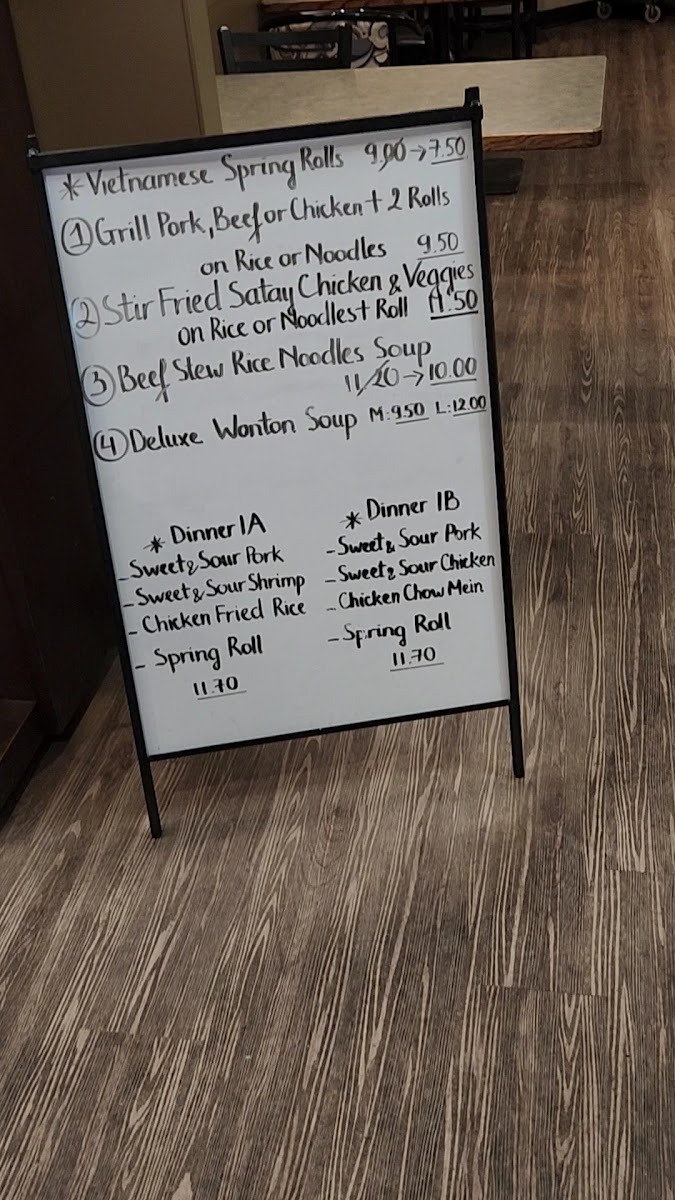 * Vietnamese Spring Rolls 9.00 → 7.50
① Grill Pork, Beef or Chicken + 2 Rolls
on Rice or Noodles 9.50
② Stir Fried Satay Chicken & Veggies
on Rice or Noodles + Roll 11.50
③ Beef Stew Rice Noodles Soup
11.20 → 10.00
④ Deluxe Wonton Soup M: 9.50 L: 12.00
* Dinner 1A
- Sweet & Sour Pork
- Sweet & Sour Shrimp
- Chicken Fried Rice
- Spring Roll
11.70
* Dinner 1B
- Sweet & Sour Pork
- Sweet & Sour Chicken
- Chicken Chow Mein
- Spring Roll
11.70